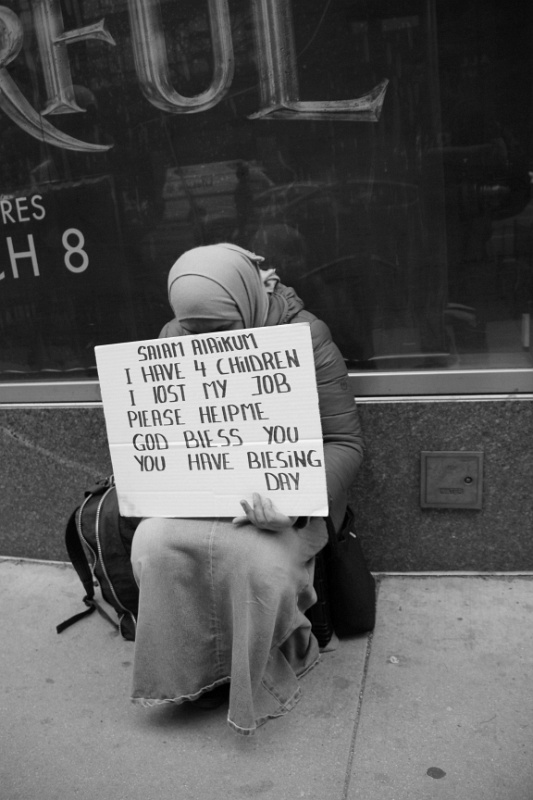 RFUL
RES
CH 8
SAIAM AIAIKUM
I HAVE 4 CHIIDREN
I IOST MY JOB
PIEASE HEIPME
GOD BIESS YOU
YOU HAVE BIESiNG
DAY